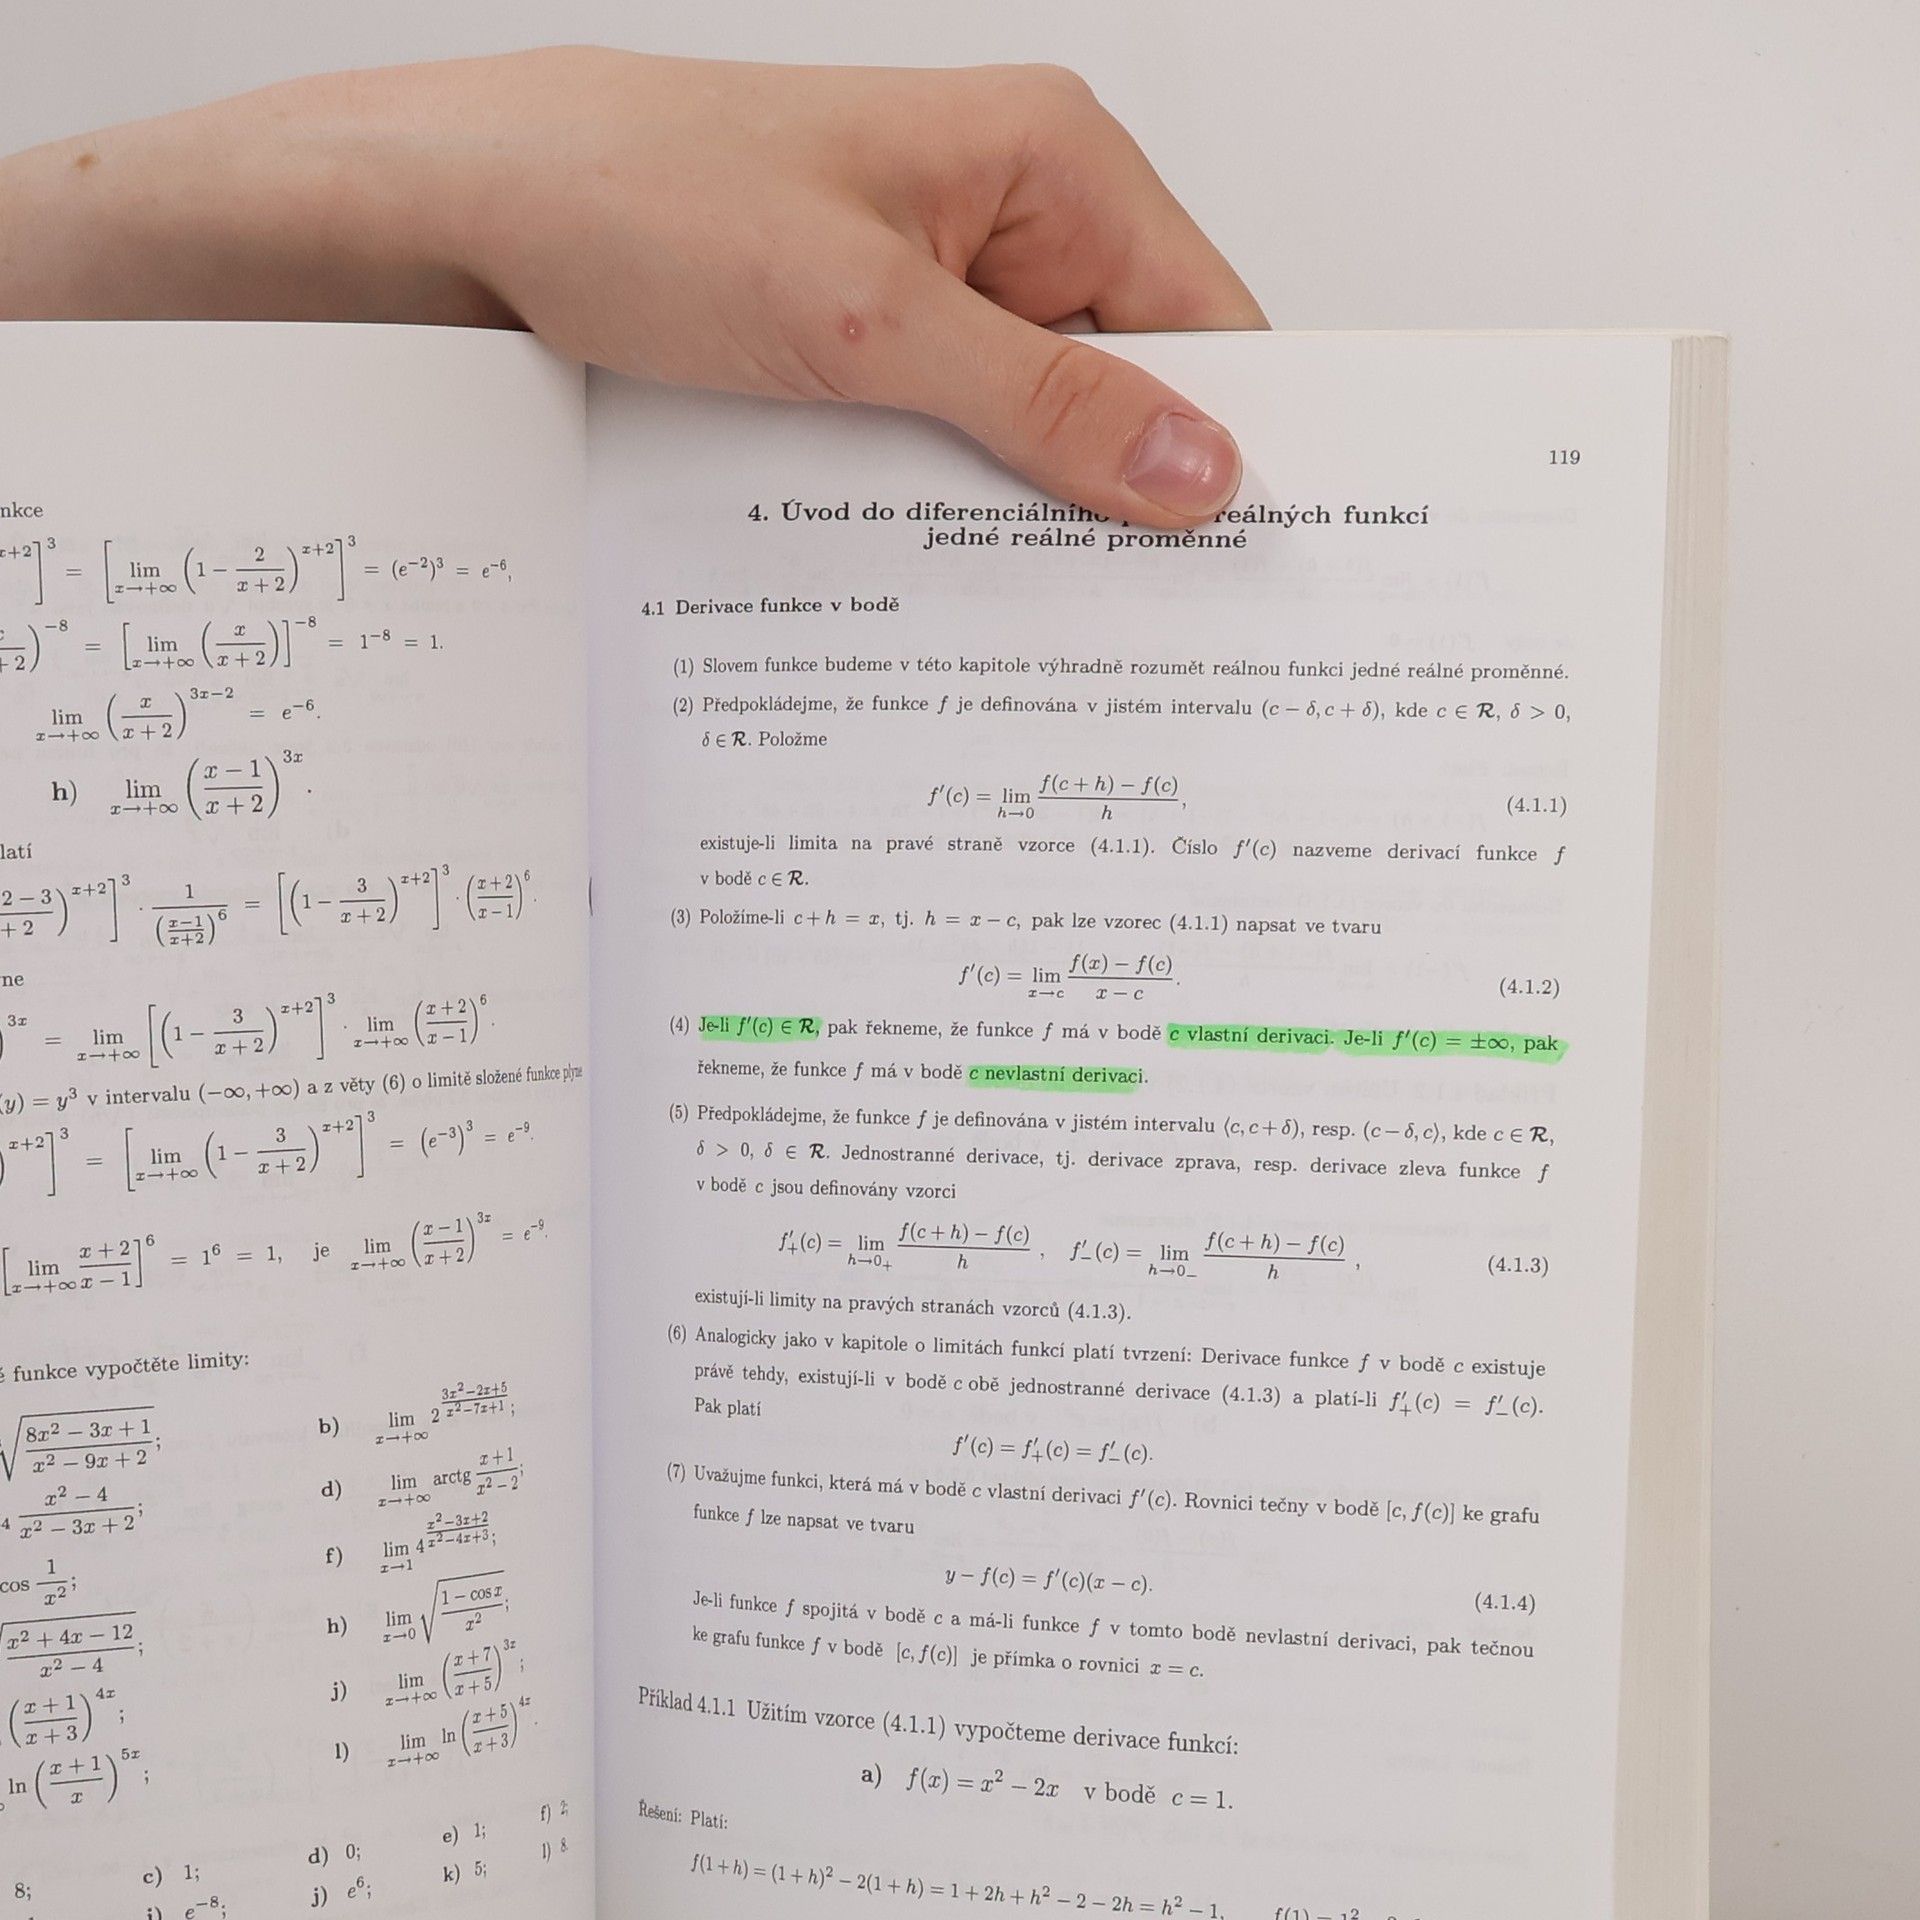 nkce
x+2]^3 = [lim_{x→+∞} (1 − 2/(x+2))^{x+2}]^3 = (e^{−2})^3 = e^{−6},
+2)^{−8} = [lim_{x→+∞} (x/(x+2))]^{−8} = 1^{−8} = 1.
lim_{x→+∞} (x/(x+2))^{3x−2} = e^{−6}.
h) lim_{x→+∞} ((x−1)/(x+2))^{3x}.
latí
2−3/+2)^{x+2}]^3 · 1/((x−1)/(x+2))^6 = [(1 − 3/(x+2))^{x+2}]^3 · ((x+2)/(x−1))^6.
ne
)^{3x} = lim_{x→+∞} [(1 − 3/(x+2))^{x+2}]^3 · lim_{x→+∞} ((x+2)/(x−1))^6.
(y) = y^3 v intervalu (−∞, +∞) a z věty (6) o limitě složené funkce plyne
)^{x+2}]^3 = [lim_{x→+∞} (1 − 3/(x+2))^{x+2}]^3 = (e^{−3})^3 = e^{−9}.
[lim_{x→+∞} (x+2)/(x−1)]^6 = 1^6 = 1, je lim_{x→+∞} ((x−1)/(x+2))^{3x} = e^{−9}.
é funkce vypočtěte limity:
√((8x^2 − 3x + 1)/(x^2 − 9x + 2)); b) lim_{x→+∞} 2^{(3x^2−2x+5)/(x^2−7x+1)};
4 (x^2 − 4)/(x^2 − 3x + 2); d) lim_{x→+∞} arctg (x+1)/(x^2−2);
cos 1/x^2; f) lim_{x→1} 4^{(x^2−3x+2)/(x^2−4x+3)};
√((x^2 + 4x − 12)/(x^2 − 4)); h) lim_{x→0} √((1 − cos x)/x^2);
((x+1)/(x+3))^{4x}; j) lim_{x→+∞} ((x+7)/(x+5))^{3x};
ln ((x+1)/x)^{5x}; l) lim_{x→+∞} ln ((x+5)/(x+3))^{4x}.
8; c) 1; d) 0; e) 1; f) 2;
i) e^{−8}; j) e^6; k) 5; l) 8.
119
4. Úvod do diferenciálního reálných funkcí
jedné reálné proměnné
4.1 Derivace funkce v bodě
(1) Slovem funkce budeme v této kapitole výhradně rozumět reálnou funkci jedné reálné proměnné.
(2) Předpokládejme, že funkce f je definována v jistém intervalu (c − δ, c + δ), kde c ∈ R, δ > 0,
δ ∈ R. Položme
f′(c) = lim_{h→0} (f(c + h) − f(c))/h, (4.1.1)
existuje-li limita na pravé straně vzorce (4.1.1). Číslo f′(c) nazveme derivací funkce f
v bodě c ∈ R.
(3) Položíme-li c + h = x, tj. h = x − c, pak lze vzorec (4.1.1) napsat ve tvaru
f′(c) = lim_{x→c} (f(x) − f(c))/(x − c). (4.1.2)
(4) Je-li f′(c) ∈ R, pak řekneme, že funkce f má v bodě c vlastní derivaci. Je-li f′(c) = ±∞, pak
řekneme, že funkce f má v bodě c nevlastní derivaci.
(5) Předpokládejme, že funkce f je definována v jistém intervalu ⟨c, c + δ), resp. (c − δ, c⟩, kde c ∈ R,
δ > 0, δ ∈ R. Jednostranné derivace, tj. derivace zprava, resp. derivace zleva funkce f
v bodě c jsou definovány vzorci
f′₊(c) = lim_{h→0₊} (f(c + h) − f(c))/h , f′₋(c) = lim_{h→0₋} (f(c + h) − f(c))/h , (4.1.3)
existují-li limity na pravých stranách vzorců (4.1.3).
(6) Analogicky jako v kapitole o limitách funkcí platí tvrzení: Derivace funkce f v bodě c existuje
právě tehdy, existují-li v bodě c obě jednostranné derivace (4.1.3) a platí-li f′₊(c) = f′₋(c).
Pak platí
f′(c) = f′₊(c) = f′₋(c).
(7) Uvažujme funkci, která má v bodě c vlastní derivaci f′(c). Rovnici tečny v bodě [c, f(c)] ke grafu
funkce f lze napsat ve tvaru
y − f(c) = f′(c)(x − c). (4.1.4)
Je-li funkce f spojitá v bodě c a má-li funkce f v tomto bodě nevlastní derivaci, pak tečnou
ke grafu funkce f v bodě [c, f(c)] je přímka o rovnici x = c.
Příklad 4.1.1 Užitím vzorce (4.1.1) vypočteme derivace funkcí:
a) f(x) = x^2 − 2x v bodě c = 1.
Řešení: Platí:
f(1 + h) = (1 + h)^2 − 2(1 + h) = 1 + 2h + h^2 − 2 − 2h = h^2 − 1, f(1) = 1^2